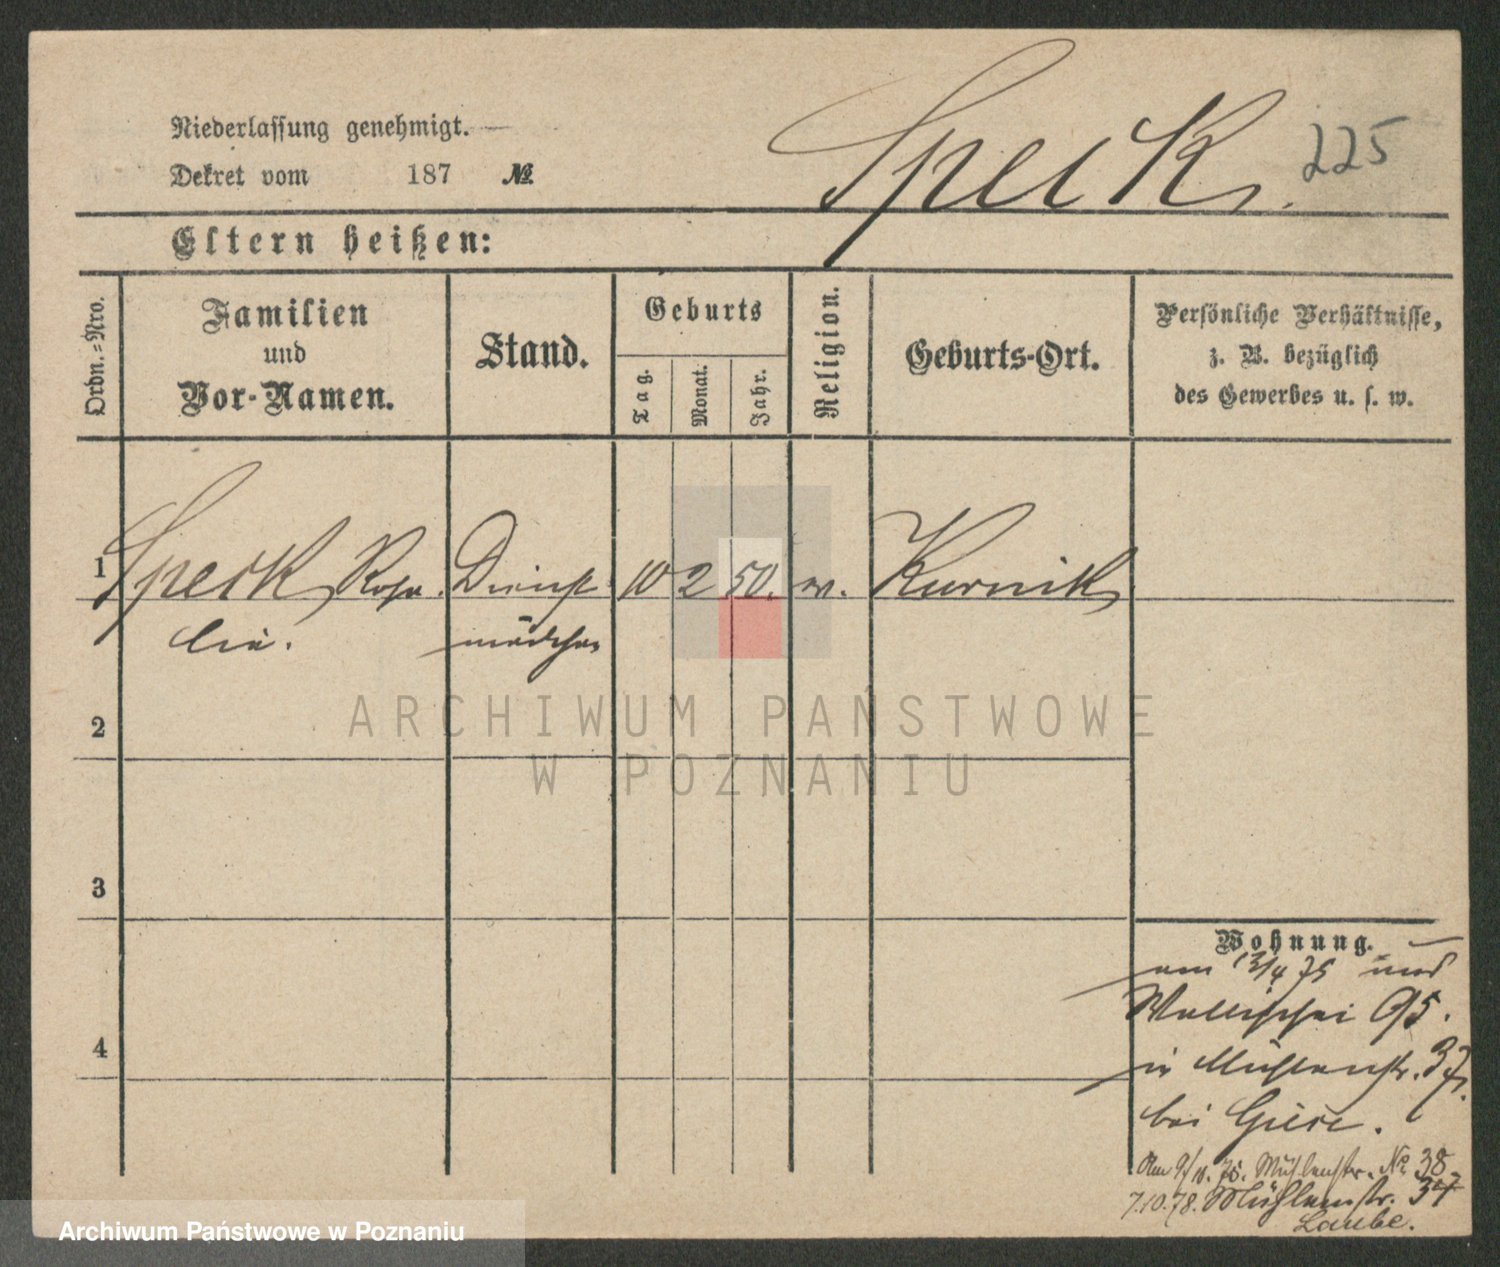 Niederlassung genehmigt.
Dekret vom 187 №
Speck. 225
Eltern heißen:
Ordn.=Nro.
Familien
und
Vor-Namen.
Stand.
Geburts
Tag.
Monat.
Jahr.
Religion.
Geburts-Ort.
Persönliche Verhältnisse,
z. B. bezüglich
des Gewerbes u. s. w.
1 Speck Rosa- Dienst 10 2 50. Kurnik
lie. mädchen
2
3
4
Wohnung.
am 13/4 75 und
Wallischei 95.
in Mühlenstr. 37.
bei
Am 9/10. 75. Mühlenstr. No 38
7.10.78. Mühlenstr. 37
Laube.
ARCHIWUM PAŃSTWOWE
W POZNANIU
Archiwum Państwowe w Poznaniu